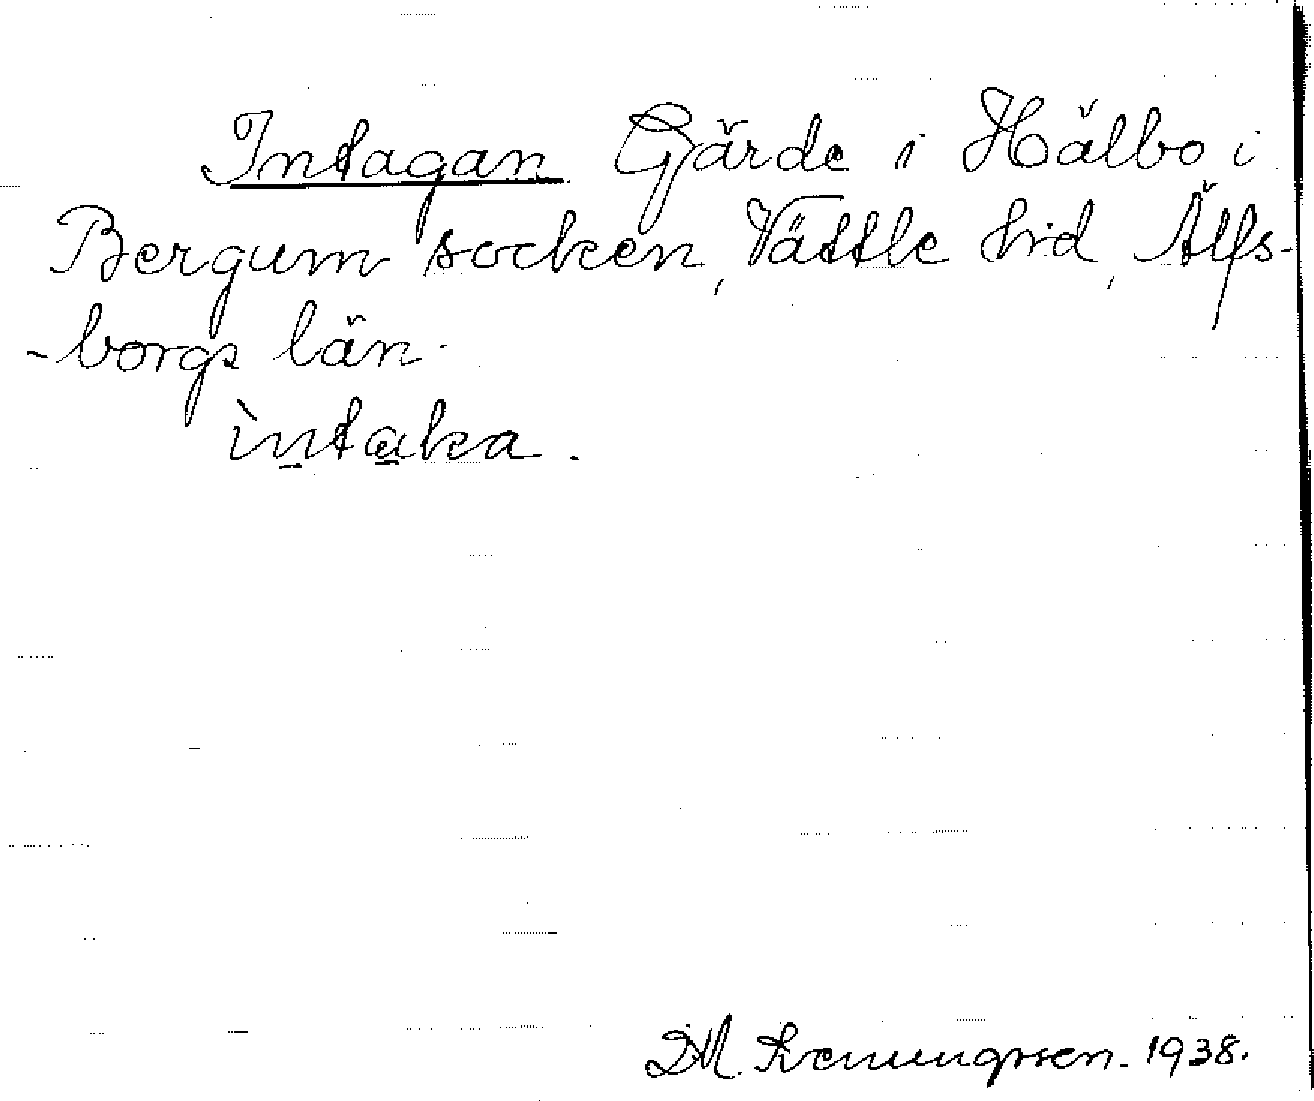 Intagan Gärde i Hälbo i
Bergum socken, Vättle hrd, Älfs-
-borgs län.
ìntaka.
1938.